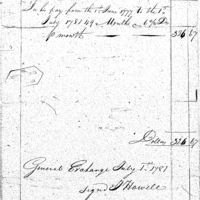 To be pay from the 1st June 1777 to the 1st
July 1781 49 Months @ 6 2/3 Ds
p month 326 67
Dollars 326 67
General Exchange July 1st 1781
signd J Howell